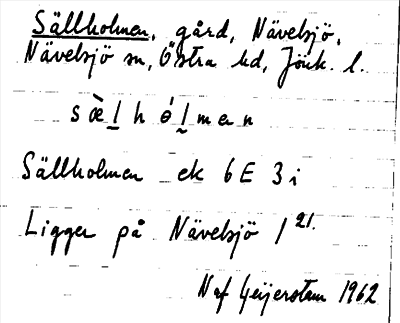 Sällholmen, gård, Nävelsjö,
Nävelsjö sn, Östra hd, Jönk. l.
sæ̀l̲hólmen
Sällholmen ek 6E 3i
Ligger på Nävelsjö 1²¹.
N af Geijerstam 1962